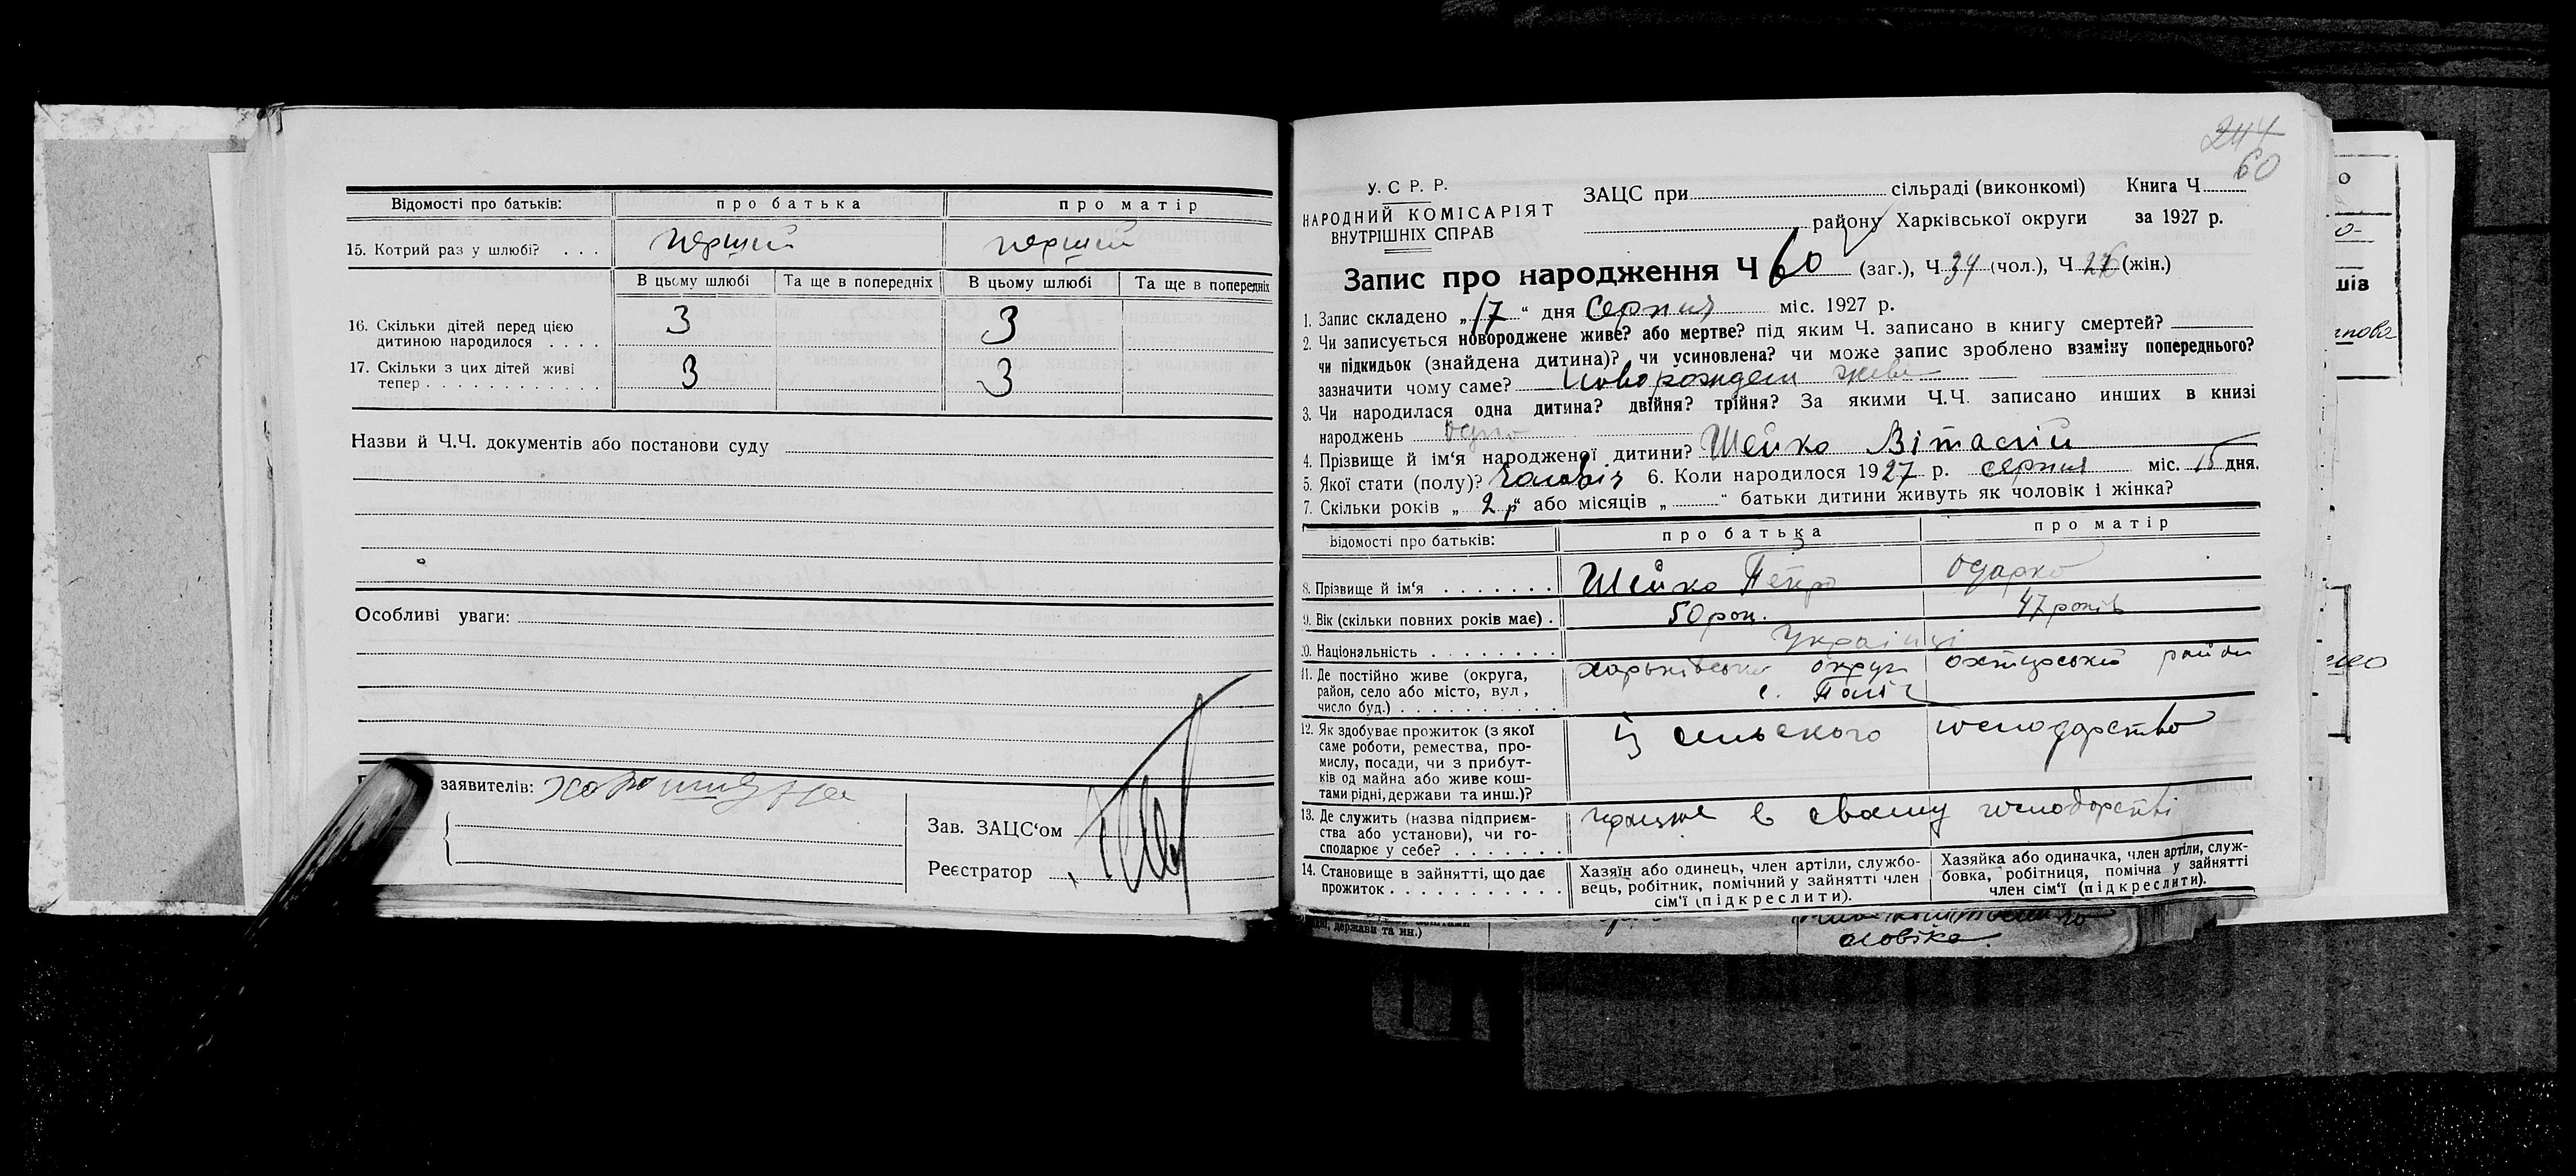 Відомості про батьків: про батька про матір
15. Котрий раз у шлюбі? . . . перший перший
В цьому шлюбі Та ще в попередніх В цьому шлюбі Та ще в попередніх
16. Скільки дітей перед цією
дитиною народилося . . . . 3 3
17. Скільки з цих дітей живі
тепер . . . . . . . . . . . . 3 3
Назви й Ч.Ч. документів або постанови суду
Особливі уваги:
заявителів:
Зав. ЗАЦС‘ом
Реєстратор
244
60
У. С Р. Р.
НАРОДНИЙ КОМІСАРІЯТ
ВНУТРІШНІХ СПРАВ
ЗАЦС при сільраді (виконкомі) Книга Ч
району Харківської округи за 1927 р.
Запис про народження Ч 60 (заг.), Ч 34 (чол.), Ч 26 (жін.)
1. Запис складено „ 17 “ дня Серпня міс. 1927 р.
2. Чи записується новороджене живе? або мертве? під яким Ч. записано в книгу смертей?
чи підкидьок (знайдена дитина)? чи усиновлена? чи може запис зроблено взаміну попереднього?
зазначити чому саме? новорожден живе
3. Чи народилася одна дитина? двійня? трійня? За якими Ч.Ч. записано инших в книзі
народжень одно
4. Прізвище й ім‘я народженої дитини? Шейко Віталій
5. Якої стати (полу)? чоловіч 6. Коли народилося 1927 р. серпня міс. 15 дня.
7. Скільки років „ 2 р “ або місяців „ “ батьки дитини живуть як чоловік і жінка?
Відомості про батьків: про батька про матір
8. Прізвище й ім‘я . . . . . . . Шейко Петро Одарка
9. Вік (скільки повних років має) . 50 рок. 47 років
10. Національність . . . . . . . . Українці
11. Де постійно живе (округа, харьківська округ охтирський район
район, село або місто, вул., с.
число буд.) . . . . . . . . . .
12. Як здобуває прожиток (з якої із сільського господарство
саме роботи, ремества, про-
мислу, посади, чи з прибут-
ків од майна або живе кош-
тами рідні, держави та инш.)?
13. Де служить (назва підприєм- працює в своему господарстві
ства або установи), чи го-
сподарює у себе? . . . . . . .
14. Становище в зайнятті, що дає
прожиток . . . . . . . . . . .
Хазяїн або одинець, член артіли, службо-
вець, робітник, помічний у зайнятті член
сім‘ї (підкреслити).
Хазяйка або одиначка, член артіли, служ-
бовка, робітниця, помічна у зайнятті
член сім‘ї (підкреслити).
держави та ин.)